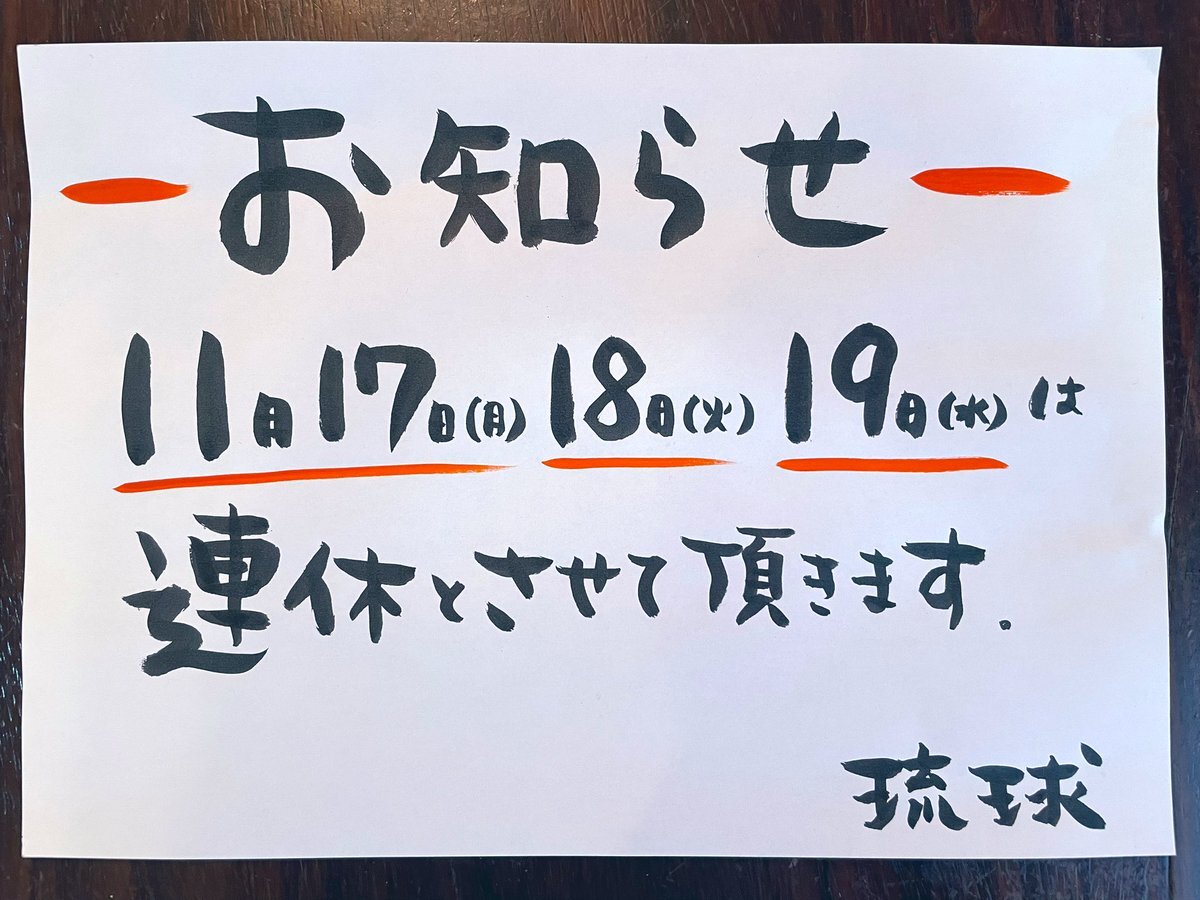 お知らせ
11月17日(月)18日(火)19日(水)は
連休とさせて頂きます.
琉球